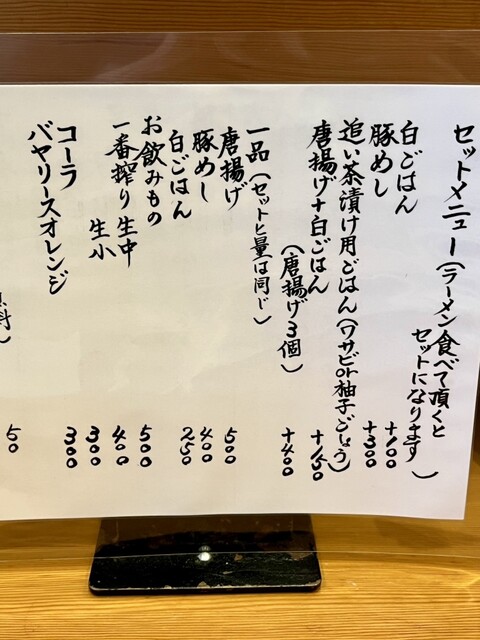 セットメニュー(ラーメン食べて頂くと
セットになります)
白ごはん +100
豚めし +300
追い茶漬け用ごはん(ワサビor柚子ごしょう) +150
唐揚げ+白ごはん
(唐揚げ3個) +400
一品(セットと量は同じ)
唐揚げ 500
豚めし 400
白ごはん 250
お飲みもの
一番搾り生中 500
生小 400
コーラ 300
バヤリースオレンジ 300
料)
50